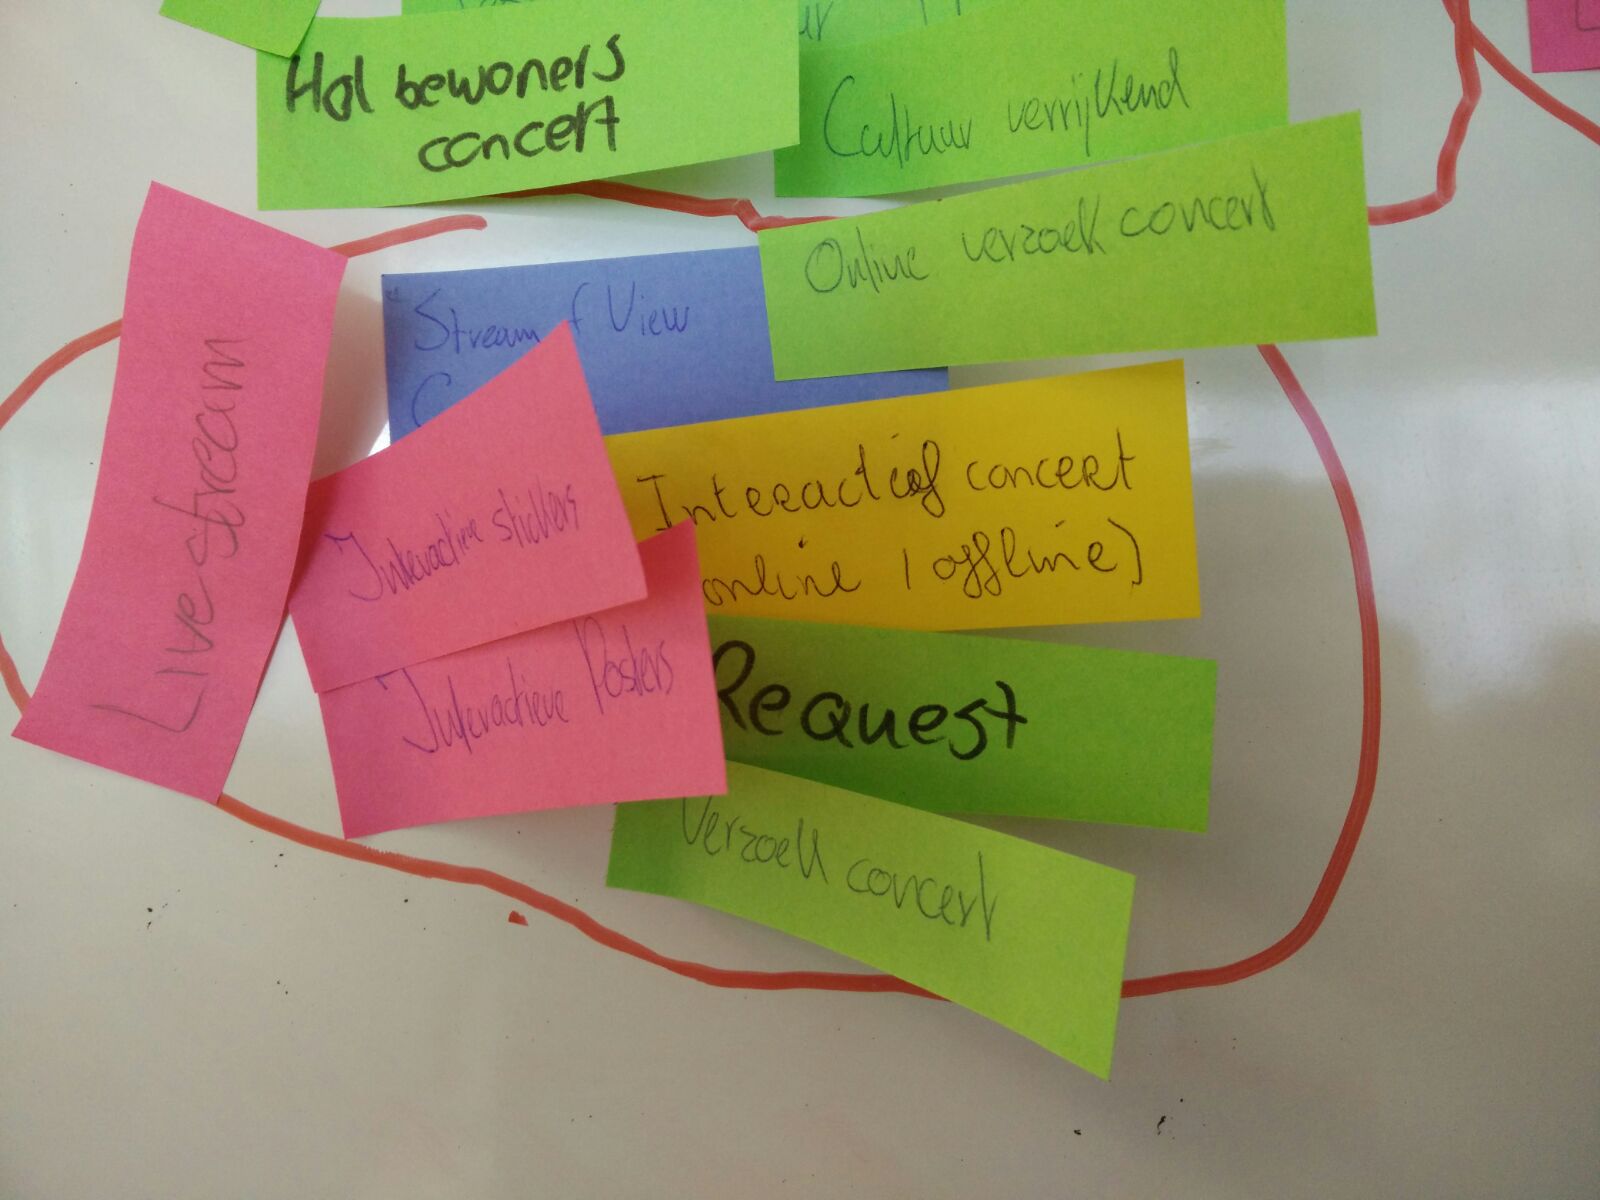 Hal bewoners
concert
Cultuur verrijkend
Online verzoek concert
Stream View
Live stream
Interactief concert
online / offline)
Interactieve stickers
Interactieve Posters
Request
Verzoek concert